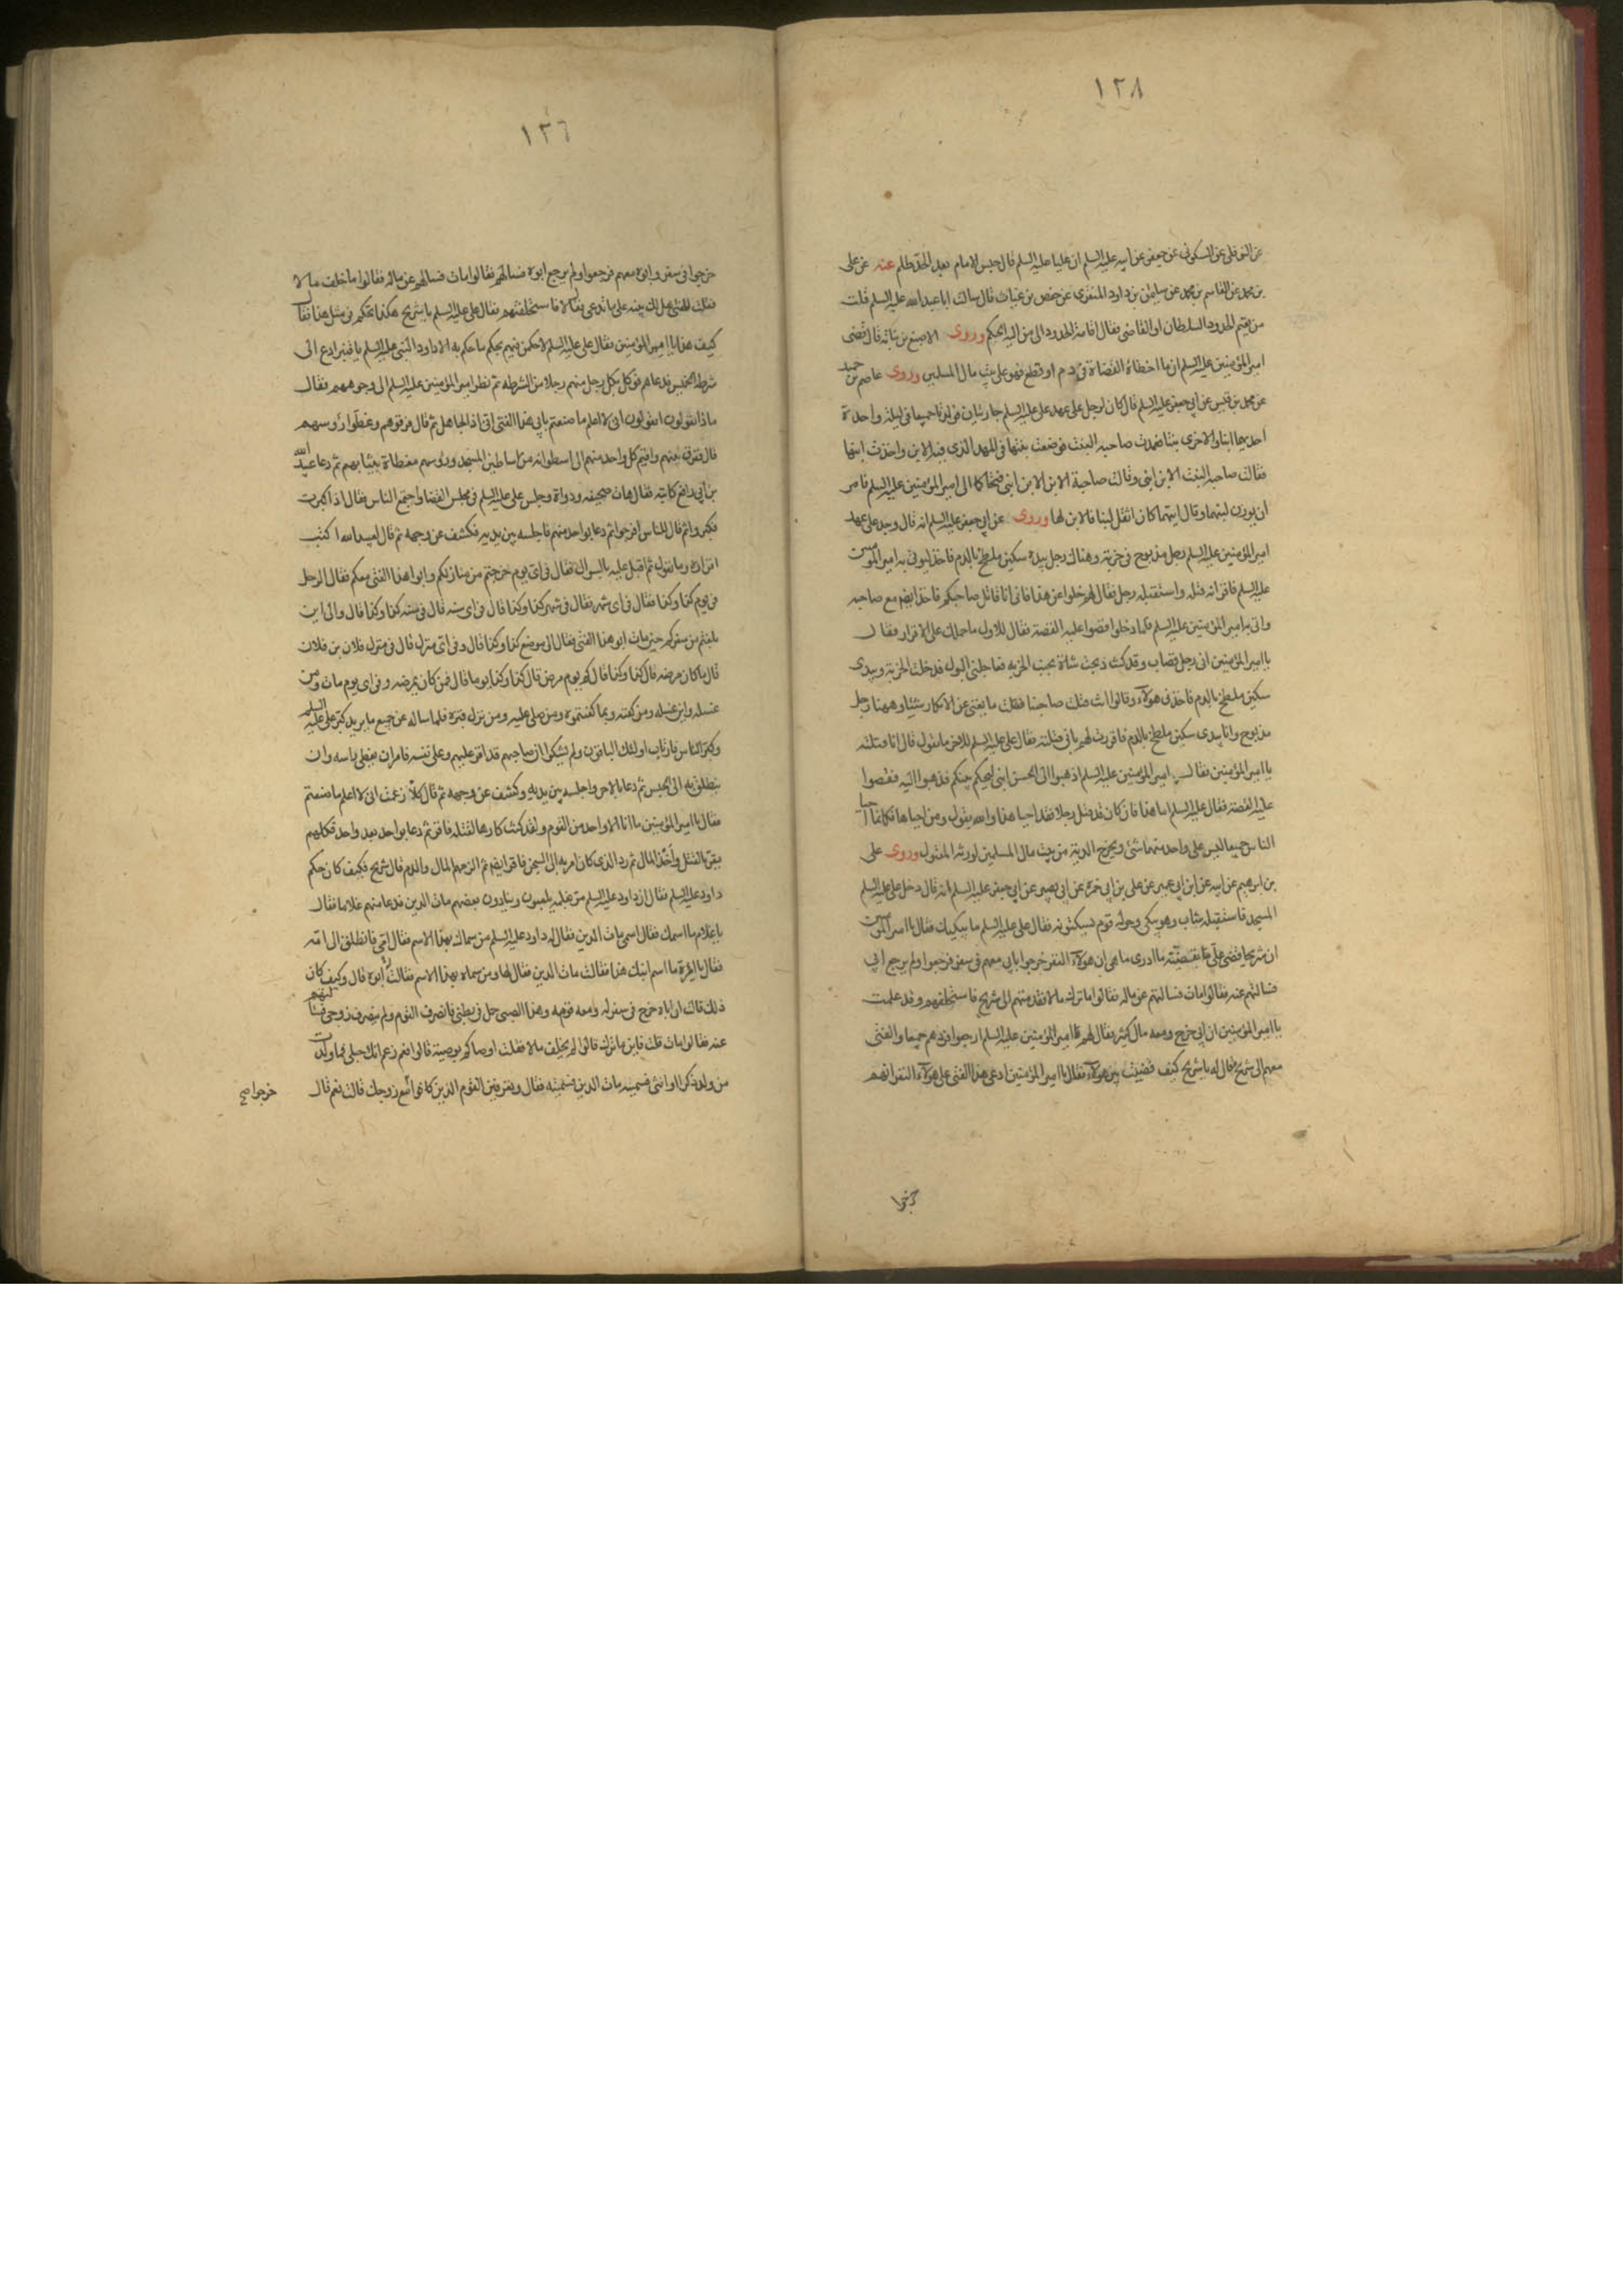 ١٢٨
عن النوفلي عن السكوني عن جعفر عن ابيه عليه السلم ان عليا عليه السلم قال حبس الامام بعد الحد ظلم عنه عن علي
بن محمد عن القاسم بن محمد عن سليمن بن داود المنقري عن حفص بن غياث قال سالت ابا عبد الله عليه السلم قلت
من يقيم الحدود السلطان او القاضي فقال اقامة الحدود الى من اليه الحكم وروى الاصبغ بن نباته قال قضى
امير المؤمنين عليه السلم ان ما اخطات القضاة في دم او قطع فهو على بيت مال المسلمين وروى عاصم بن حميد
عن محمد بن قيس عن ابي جعفر عليه السلم قال كان لرجل على عهد علي عليه السلم جاريتان فولدتا جميعا في ليلة واحدة
احديهما ابنا والاخرى بنتا فعمدت صاحبة البنت فوضعت بنتها في المهد الذي فيه الابن واخذت ابنها
فقالت صاحبة البنت الابن ابني وقالت صاحبة الابن الابن ابني فتحاكما الى امير المؤمنين عليه السلم فامر
ان يوزن لبنهما وقال ايتهما كان اثقل لبنا فالابن لها وروى عن ابي جعفر عليه السلم انه قال وجد على عهد
امير المؤمنين عليه السلم رجل مذبوح في خربة وهناك رجل بيده سكين ملطخ بالدم فاخذ ليؤتى به امير المؤمنين
عليه السلم فاقر انه قتله واستقبله رجل فقال لهم خلوا عن هذا فاني انا قاتل صاحبكم فاخذ ايضا مع صاحبه
واتي به امير المؤمنين عليه السلم فلما دخلوا قصوا عليه القصة فقال للاول ما حملك على الاقرار فقال
يا امير المؤمنين اني رجل قصاب وقد كنت ذبحت شاة بجنب الخربة فعاجلني البول فدخلت الخربة وبيدي
سكين ملطخ بالدم فاخذني هؤلاء وقالوا انت قتلت صاحبنا فقلت ما يغني عني الانكار شيئا وههنا رجل
مذبوح وانا بيدي سكين ملطخ بالدم فاقررت لهم باني قتلته فقال علي عليه السلم للاخر ما تقول قال انا قتلته
يا امير المؤمنين فقال امير المؤمنين عليه السلم اذهبوا الى الحسن ابني ليحكم بينكم فذهبوا اليه فقصوا
عليه القصة فقال عليه السلم اما هذا فان كان قد قتل رجلا فقد احيا هذا والله يقول ومن احياها فكانما احيا
الناس جميعا ليس على واحد منهما شئ ويخرج الدية من بيت مال المسلمين لورثة المقتول وروى علي
بن ابرهيم عن ابيه عن ابن ابي عمير عن علي بن ابي حمزة عن ابي بصير عن ابي جعفر عليه السلم انه قال دخل علي عليه السلم
المسجد فاستقبله شاب وهو يبكي وحوله قوم يسكتونه فقال علي عليه السلم ما يبكيك فقال يا امير المؤمنين
ان شريحا قضى علي بقضية ما ادري ما هي ان هؤلاء النفر خرجوا بابي معهم في سفر فرجعوا ولم يرجع ابي
فسالتهم عنه فقالوا مات فسالتهم عن ماله فقالوا ما ترك مالا فقدمتهم الى شريح فاستحلفهم وقد علمت
يا امير المؤمنين ان ابي خرج ومعه مال كثير فقال لهم امير المؤمنين عليه السلم ارجعوا فردهم جميعا والفتى
معهم الى شريح فقال له يا شريح كيف قضيت بين هؤلاء فقال يا امير المؤمنين ادعى هذا الفتى على هؤلاء النفر انهم
خرجوا
١٢٦
خرجوا في سفر وابوه معهم فرجعوا ولم يرجع ابوه فسالتهم فقالوا مات فسالتهم عن ماله فقالوا ما خلف مالا
فقلت للفتى هل لك بينة على ما تدعي فقال لا فاستحلفتهم فقال علي عليه السلم يا شريح هكذا تحكم في مثل هذا فقال
كيف هذا يا امير المؤمنين فقال علي عليه السلم لاحكمن فيهم بحكم ما حكم به الا داود النبي عليه السلم يا قنبر ادع الي
شرطة الخميس فدعاهم فوكل بكل رجل منهم رجلا من الشرطة ثم نظر امير المؤمنين عليه السلم الى وجوههم فقال
ماذا تقولون اتقولون اني لا اعلم ما صنعتم بابي هذا الفتى اني اذا لجاهل ثم قال فرقوهم وغطوا رؤسهم
قال ففرق بينهم واقيم كل واحد منهم الى اسطوانة من اساطين المسجد ورؤسهم مغطاة بثيابهم ثم دعا عبيد الله
بن ابي رافع كاتبه فقال هات صحيفة ودواة وجلس علي عليه السلم في مجلس القضا واجتمع الناس فقال اذا كبرت
فكبروا ثم قال للناس افرجوا ثم دعا بواحد منهم فاجلسه بين يديه فكشف عن وجهه ثم قال لعبيد الله اكتب
اقراره وما يقول ثم اقبل عليه بالسوال فقال في اي يوم خرجتم من منازلكم وابو هذا الفتى معكم فقال الرجل
في يوم كذا وكذا فقال في اي شهر فقال في شهر كذا وكذا قال في اي سنة قال في سنة كذا وكذا قال والى اين
بلغتم من سفركم حين مات ابو هذا الفتى فقال الى موضع كذا وكذا قال وفي اي منزل قال في منزل فلان بن فلان
قال ما كان مرضه قال كذا وكذا قال كم يوم مرض قال كذا وكذا يوما قال فمن كان يمرضه وفي اي يوم مات ومن
غسله واين غسله ومن كفنه وبما كفنتموه ومن صلى عليه ومن نزل قبره فلما ساله عن جميع ما يريد كبر علي عليه السلم
وكبر الناس فارتاب اولئك الباقون ولم يشكوا ان صاحبهم قد اقر عليهم وعلى نفسه فامر ان يغطى راسه وان
ينطلق به الى الحبس ثم دعا بالاخر واجلسه بين يديه وكشف عن وجهه ثم قال كلا زعمت اني لا اعلم ما صنعتم
فقال يا امير المؤمنين ما انا الا واحد من القوم ولقد كنت كارها لقتله فاقر ثم دعا بواحد بعد واحد فكلهم
يقر بالقتل واخذ المال ثم رد الذي كان امر به الى السجن فاقر ايضا ثم الزمهم المال والدم قال شريح فكيف كان حكم
داود عليه السلم فقال ان داود عليه السلم مر بغلمة يلعبون وينادون بعضهم مات الدين فدعا منهم غلاما فقال
يا غلام ما اسمك فقال اسمي مات الدين فقال له داود عليه السلم من سماك بهذا الاسم فقال امي فانطلق الى امه
فقال يا امرة ما اسم ابنك هذا فقالت مات الدين فقال لها ومن سماه بهذا الاسم فقالت ابوه قال وكيف كان
ذلك قالت ان اباه خرج في سفر له ومعه قوم وهذا الصبي حمل في بطني فانصرف القوم ولم ينصرف زوجي فسالتهم
عنه فقالوا مات قلت فاين ما ترك قالوا لم يخلف مالا فقلت اوصاكم بوصية قالوا نعم زعم انك حبلى فما ولدت
من ولد ذكر او انثى فسميه مات الدين فسميته فقال وتعرفين القوم الذين كانوا مع زوجك قالت نعم قال
خرجوا صح